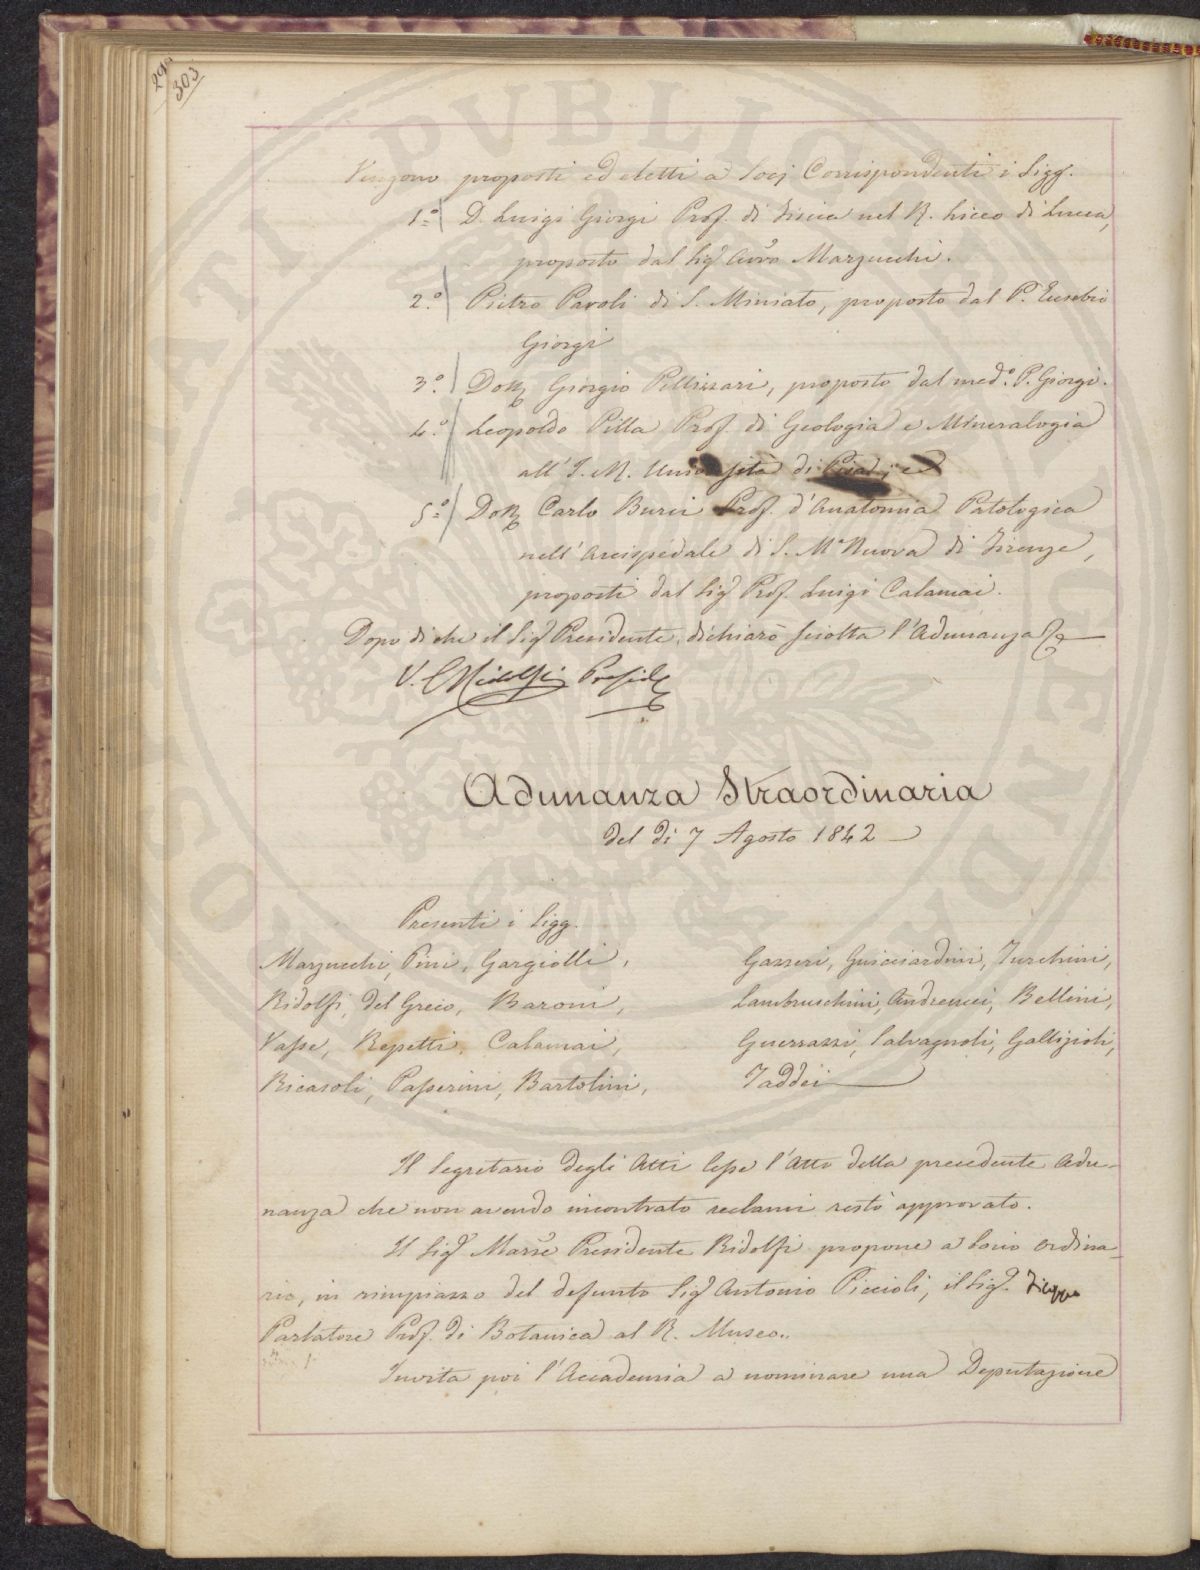 303
Vengono proposti ed eletti a Socj Corrispondenti i Sigg.
1.° D. Luigi Giorgi Prof. di Fisica nel R. Liceo di Lucca,
proposto dal Sig. Avv.o Marzucchi.
2.° Pietro Pavoli di S. Miniato, proposto dal P. Eusebio
Giorgi
3.° Dott. Giorgio Pellizzari, proposto dal med.° P. Giorgi.
4.° Leopoldo Pilla Prof. di Geologia e Mineralogia
all' I. R. Università di Pisa; e
5.° Dott. Carlo Burci Prof. d'Anatomia Patologica
nell' Arcispedale di S. M.a Nuova di Firenze,
proposti dal Sig. Prof. Luigi Calamai.
Dopo di che il Sig. Presidente dichiarò sciolta l'Adunanza
V. C. Ridolfi Presid.
Adunanza Straordinaria
del dì 7 Agosto 1842
Presenti i Sigg.
Marzucchi, Pini, Gargiolli,
Ridolfi, Del Greco, Baroni,
Vasse, Repetti, Calamai,
Ricasoli, Passerini, Bartolini,
Gazzeri, Guicciardini, Turchini,
Lambruschini, Andreucci, Bellini,
Guerrazzi, Salvagnoli, Gallizioli,
Taddei
Il Segretario degli Atti lesse l'Atto della precedente Adu-
nanza che non avendo incontrato reclami restò approvato.
Il Sig. Marse Presidente Ridolfi propone a Socio ordina-
rio, in rimpiazzo del defunto Sig. Antonio Piccioli, il Sig. Filippo
Parlatore Prof. di Botanica al R. Museo.
Invita poi l'Accademia a nominare una Deputazione